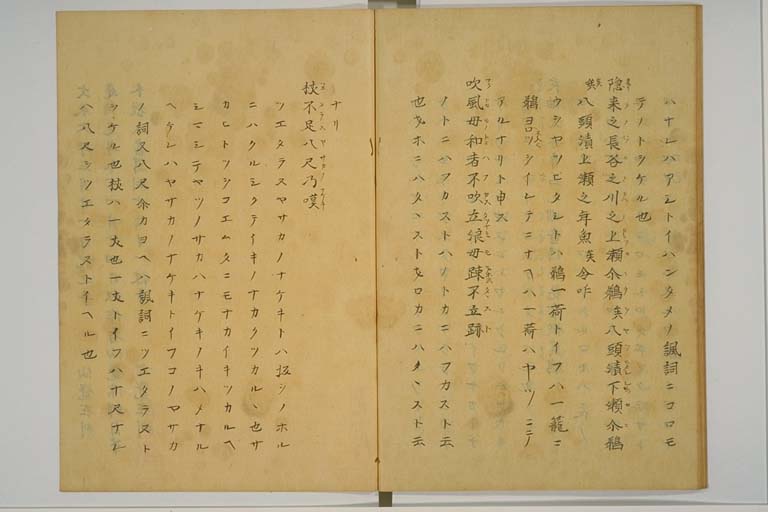 ハナレハアシトイハンタメノ諷詞ニコロモ
テノトツケル也
隠来之長谷之川之上瀬尒鵜矣八頭漬下瀬尒鵜
矣八頭漬上瀬之年魚矣令咋
ウシヤツヒタシトハ鵜一荷トイフハ一籠ニ
鵜ヨツシイレテニナヘハ一荷ハヤツニニテ
アルナリト申ス
吹風母和者不吹立浪母踈不立跡
ノトニハフカストハノトカニハフカスト云
也オホニハタヽストオロカニハタヽスト云
ナリ
杖不足八尺乃嘆
ツエタラスヤサカノナケキトハ坂シノホル
ニハクルシクテイキノナカクツカルヽ也サ
カヒトツシコエムタニモナカイキツカルヘ
シマシテヤツノサカハナケキノキハメナル
ヘケレハヤサカノナケキトイフコノヤサカ
ノ詞又八尺余カヨヘハ諷詞ニツエタラスト
ツヽケル也杖ハ一丈也一丈トイフハ十尺ナレ
ハ八尺シツエタラストイヘル也